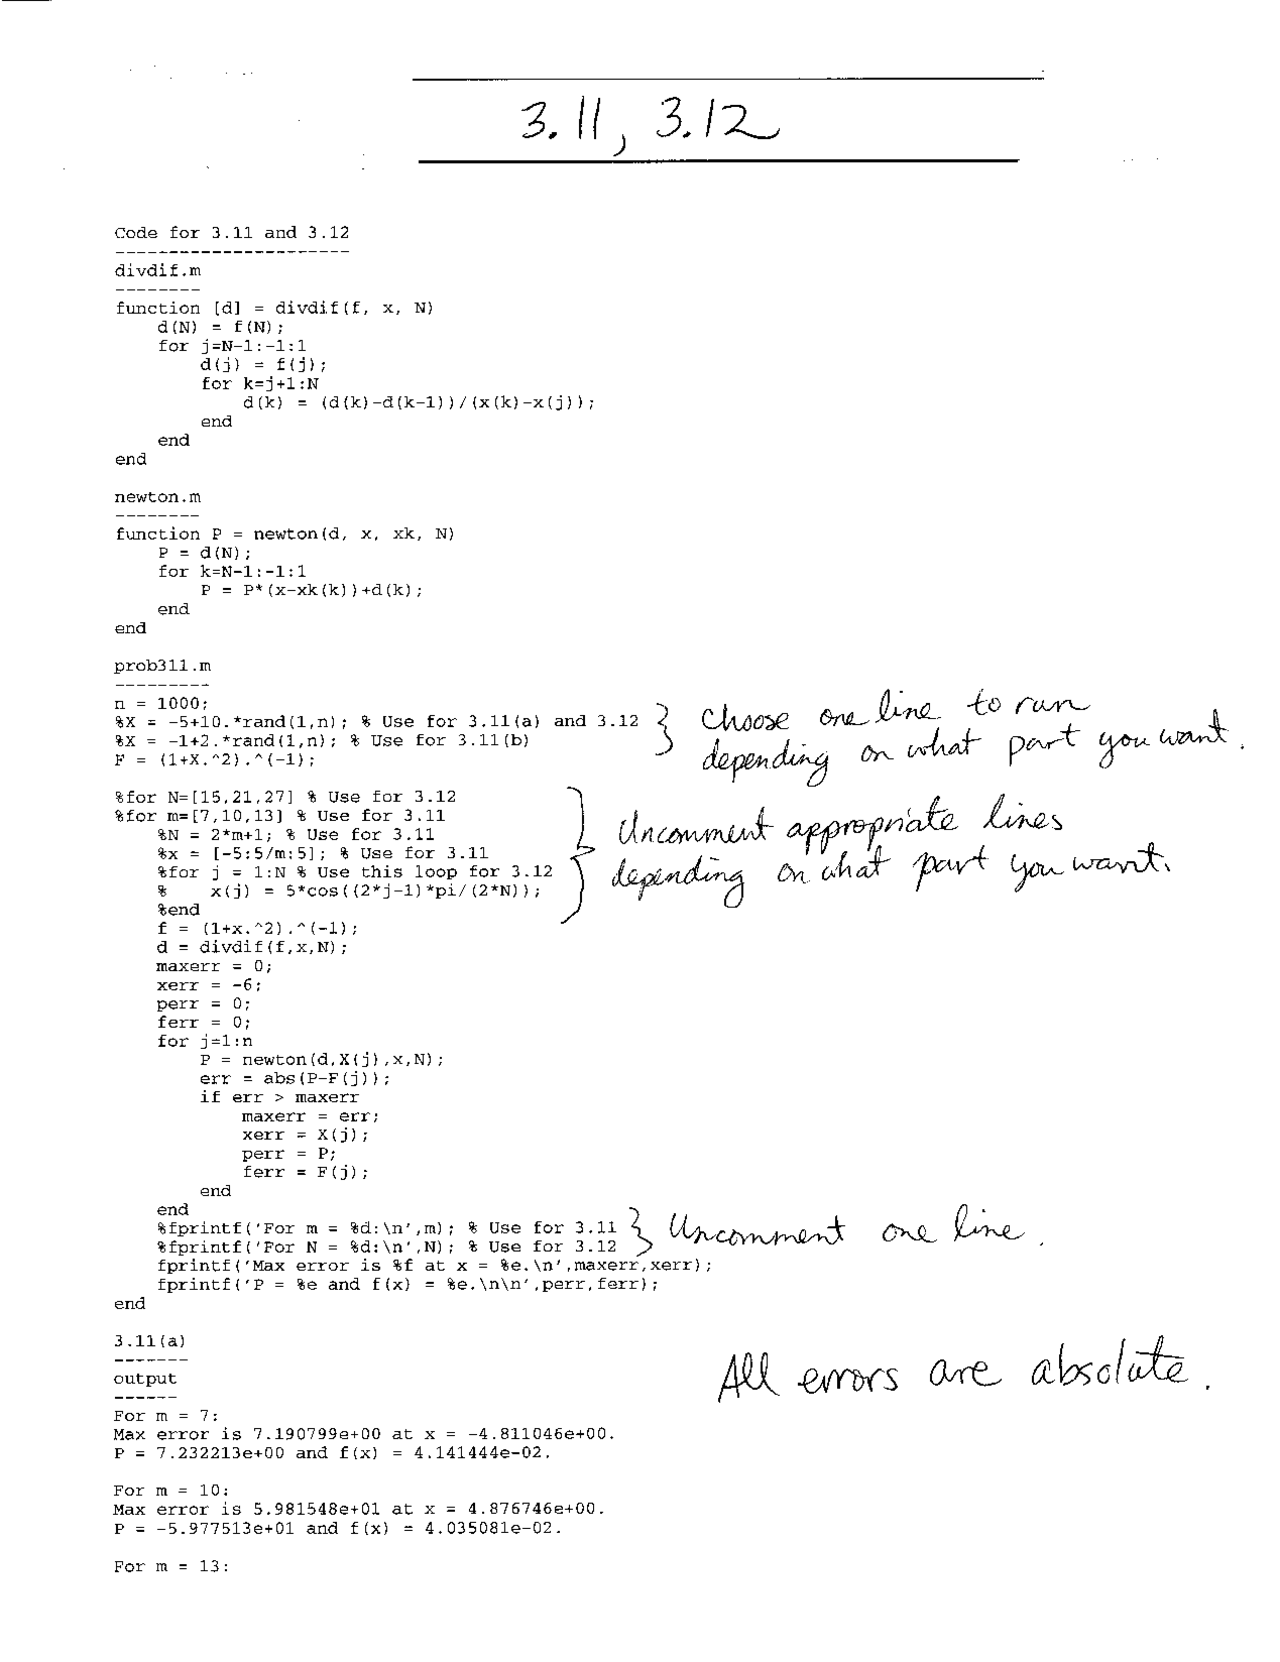 3.11, 3.12
Code for 3.11 and 3.12
----------------------
divdif.m
--------
function [d] = divdif(f, x, N)
    d(N) = f(N);
    for j=N-1:-1:1
        d(j) = f(j);
        for k=j+1:N
            d(k) = (d(k)-d(k-1))/(x(k)-x(j));
        end
    end
end
newton.m
--------
function P = newton(d, x, xk, N)
    P = d(N);
    for k=N-1:-1:1
        P = P*(x-xk(k))+d(k);
    end
end
prob311.m
---------
n = 1000;
%X = -5+10.*rand(1,n); % Use for 3.11(a) and 3.12 } Choose one line to run
%X = -1+2.*rand(1,n); % Use for 3.11(b) depending on what part you want.
F = (1+X.^2).^(-1);
%for N=[15,21,27] % Use for 3.12
%for m=[7,10,13] % Use for 3.11
    %N = 2*m+1; % Use for 3.11 } Uncomment appropriate lines
    %x = [-5:5/m:5]; % Use for 3.11
    %for j = 1:N % Use this loop for 3.12 depending on what part you want.
    %    x(j) = 5*cos((2*j-1)*pi/(2*N));
    %end
    f = (1+x.^2).^(-1);
    d = divdif(f,x,N);
    maxerr = 0;
    xerr = -6;
    perr = 0;
    ferr = 0;
    for j=1:n
        P = newton(d,X(j),x,N);
        err = abs(P-F(j));
        if err > maxerr
            maxerr = err;
            xerr = X(j);
            perr = P;
            ferr = F(j);
        end
    end
    %fprintf('For m = %d:\n',m); % Use for 3.11 } Uncomment one line.
    %fprintf('For N = %d:\n',N); % Use for 3.12
    fprintf('Max error is %f at x = %e.\n',maxerr,xerr);
    fprintf('P = %e and f(x) = %e.\n\n',perr,ferr);
end
3.11(a)
-------
output All errors are absolute.
------
For m = 7:
Max error is 7.190799e+00 at x = -4.811046e+00.
P = 7.232213e+00 and f(x) = 4.141444e-02.
For m = 10:
Max error is 5.981548e+01 at x = 4.876746e+00.
P = -5.977513e+01 and f(x) = 4.035081e-02.
For m = 13: